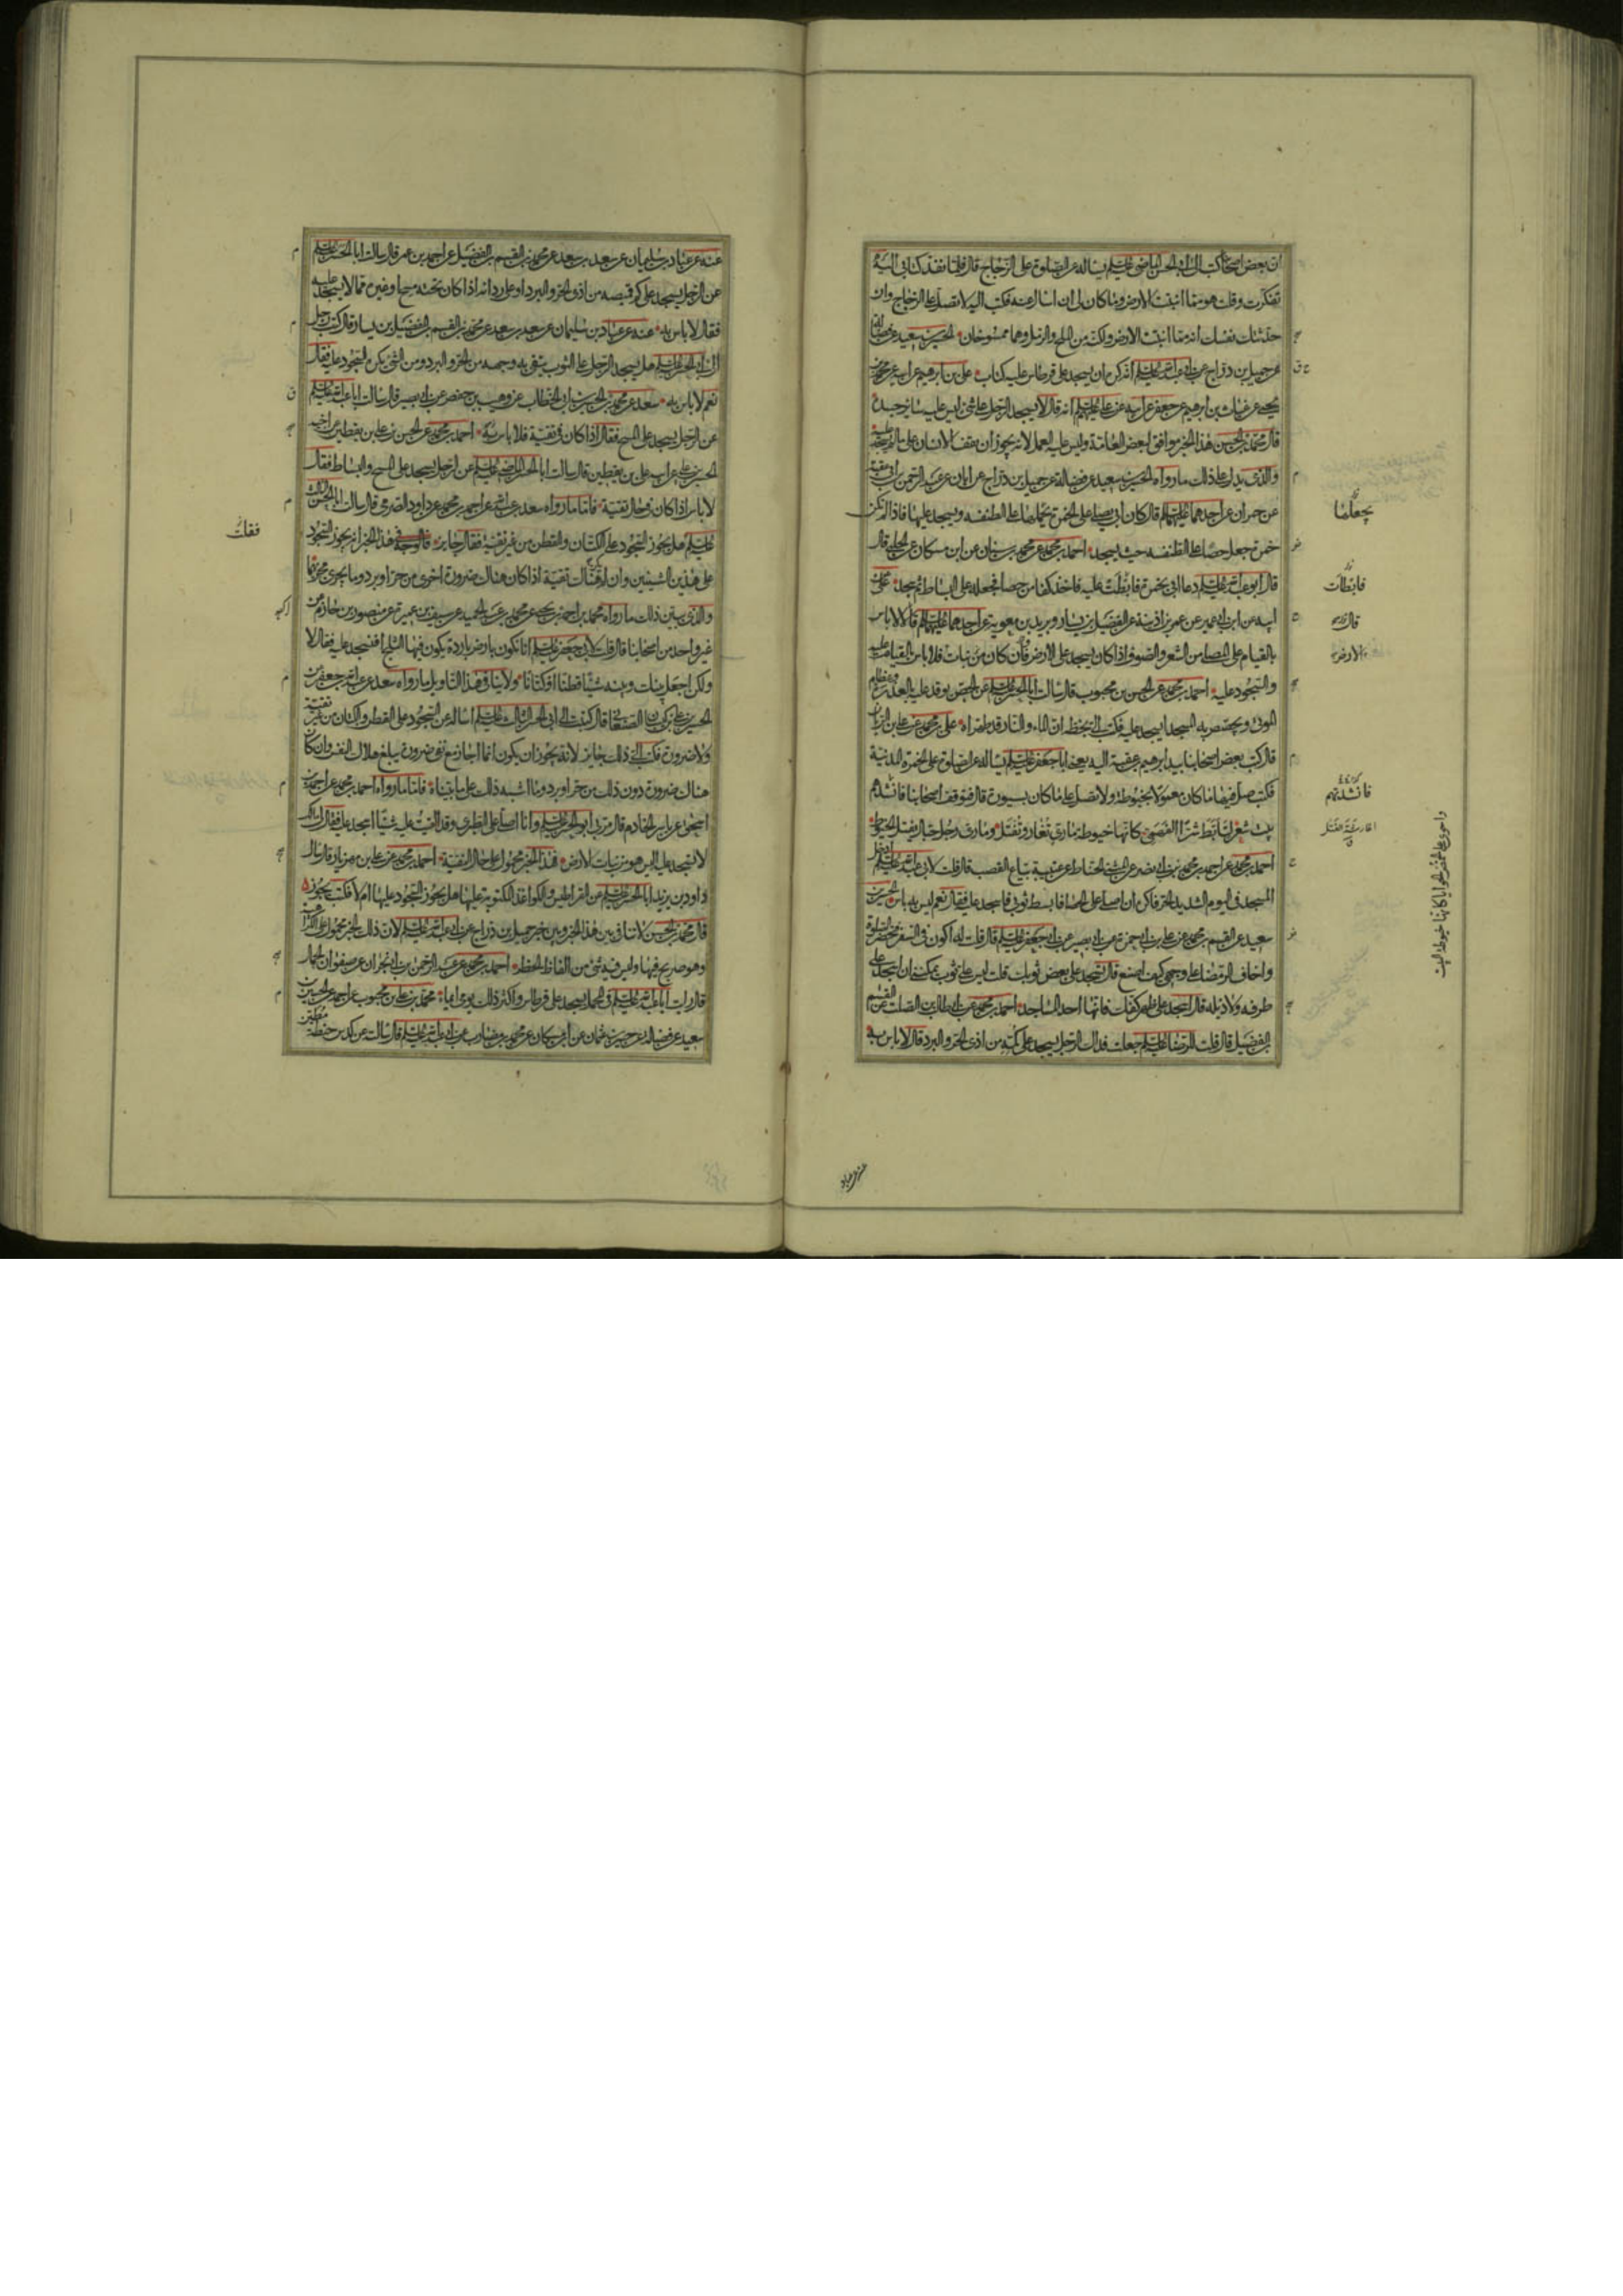 ان بعض اصحابنا كتب الى ابى الحسن الماضى عليه السلم يساله عن الصلوة على الزجاج قال فلما نفذ كتابى اليه
تفكرت وقلت هو مما انبتت الارض وما كان لى ان اسال عنه فكتب اليه لا تصل على الزجاج وان
حدثتك نفسك انه مما انبتت الارض ولكنه من الملح والرمل وهما ممسوخان الحسين بن سعيد عن فضالة
عن جميل بن دراج عن ابى عبد الله عليه السلم انه كره ان يسجد على قرطاس عليه كتاب على بن ابرهيم عن ابيه عن محمد بن
يحيى عن غياث بن ابرهيم عن جعفر عن ابيه عن على عليهم السلم انه قال لا يسجد الرجل على شئ ليس عليه سائر جسده
قال محمد بن الحسن هذا الخبر موافق لبعض العامة وليس عليه العمل لانه يجوز ان يقف الانسان على ما لم يسجد عليه
والذى يدل على ذلك ما رواه الحسين بن سعيد عن فضالة عن جميل بن دراج عن ابان عن عبد الرحمن بن ابى عبد الله
عن حمران عن احدهما عليهما السلم قال كان ابى يصلى على الخمرة يجعلها على الطنفسه ويسجد عليها فاذا لم تكن
خمرة جعل حصا على الطنفسه حيث يسجد احمد بن محمد عن محمد بن سنان عن ابن مسكان عن الحلبى قال
قال ابو عبد الله عليه السلم دعا ابى بخمرة فابطأت عليه فاخذ كفا من حصا فجعله على البساط ثم سجد على عن
ابيه عن ابن ابى عمير عن عمر بن اذينة عن الفضيل بن يسار وبريد بن معوية عن احدهما عليهما السلم قال لا باس
بالقيام على المصلى من الشعر والصوف اذا كان يسجد على الارض فان كان من نبات فلا باس بالقيام عليه
والسجود عليه احمد بن محمد عن الحسن بن محبوب قال سالت ابا الحسن عليه السلم عن الجص يوقد عليه بالعذرة وعظام
الموتى ويجصص به المسجد ايسجد عليه فكتب الى بخطه ان الماء والنار قد طهراه على بن محمد عن على بن الريان
قال كتب بعض اصحابنا بيد ابرهيم بن عقبة اليه يعنى ابا جعفر عليه السلم يساله عن الصلوة على الخمرة المدنية
فكتب صل فيها ما كان معمولا بخيوطة ولا تصل على ما كان بسيورة قال فتوقف اصحابنا فانشدتهم
بيت شعر لتابط شرا الفهمى كانها خيوطة مارى تغار وتفتل ومارى رجل حبال يفتل الخيوط
احمد بن محمد عن احمد بن محمد بن ابى نصر عن المثنى الحناط عن عيينة بياع القصب قال قلت لابى عبد الله عليه السلم ادخل
المسجد فى اليوم الشديد الحر فاكره ان اصلى على الحصا فابسط ثوبى فاسجد عليه فقال نعم ليس به باس الحسين بن
سعيد عن القسم بن محمد عن على بن ابى حمزة عن ابى بصير عن ابى جعفر عليه السلم قال قلت له اكون فى السفر فتحضر الصلوة
واخاف الرمضاء على وجهى كيف اصنع قال تسجد على بعض ثوبك قلت ليس على ثوب يمكننى ان اسجد على
طرفه ولا ذيله قال اسجد على ظهر كفك فانها احد المساجد احمد بن محمد عن ابى طالب بن الصلت عن القسم
بن الفضيل قال قلت للرضا عليه السلم جعلت فداك الرجل يسجد على كمه من اذى الحر والبرد قال لا باس به
يجعلها
فابطات
قال
الارض
فانشدتهم
عنه عن عباد
عنه عن عباد بن سليمان عن سعد بن سعد عن محمد بن القسم بن الفضيل عن احمد بن عمر قال سالت ابا الحسن عليه السلم
عن الرجل يسجد على كم قميصه من اذى الحر والبرد او على ردائه اذا كان تحته مسح او غيره مما لا يسجد عليه
فقال لا باس به عنه عن عباد بن سليمان عن سعد بن سعد عن محمد بن القسم بن الفضيل بن يسار قال كتب رجل
الى ابى الحسن عليه السلم هل يسجد الرجل على الثوب يتقى به وجهه من الحر والبرد ومن الشئ يكره السجود عليه فقال
نعم لا باس به سعد عن محمد بن الحسين بن ابى الخطاب عن وهيب بن حفص عن ابى بصير قال سالت ابا عبد الله عليه السلم
عن الرجل يسجد على المسح فقال اذا كان فى تقية فلا باس به احمد بن محمد عن الحسن بن على بن يقطين عن اخيه
الحسين بن على عن ابيه على بن يقطين قال سالت ابا الحسن الماضى عليه السلم عن الرجل يسجد على المسح والبساط فقال
لا باس اذا كان فى حال تقية فاما ما رواه سعد عن عبد الله عن احمد بن محمد عن داود الصرمى قال سالت ابا الحسن الثالث
عليه السلم هل يجوز السجود على الكتان والقطن من غير تقية فقال جايز فالوجه فى هذا الخبر انه يجوز السجود
على هذين الشيئين وان لم تكن هناك تقية اذا كان هناك ضرورة اخرى من حر او برد وما يجرى مجراهما
والذى يبين ذلك ما رواه محمد بن احمد بن يحيى عن محمد بن عبد الحميد عن سيف بن عميرة عن منصور بن حازم عن
غير واحد من اصحابنا قال قلت لابى جعفر عليه السلم انا نكون بارض باردة يكون فيها الثلج افنسجد عليه فقال لا
ولكن اجعل بينك وبينه شيئا قطنا او كتانا ولا ينافى هذا التاويل ما رواه سعد عن عبد الله بن جعفر عن
الحسين بن على بن كيسان الصنعانى قال كتبت الى ابى الحسن الثالث عليه السلم اساله عن السجود على القطن والكتان من غير تقية
ولا ضرورة فكتب الى ذلك جايز لانه يجوز ان يكون انما اجاز مع نفى ضرورة يبلغ هلاك النفس وان كان
هناك ضرورة دون ذلك من حر او برد وما اشبه ذلك على ما بيناه فاما ما رواه احمد بن محمد عن احمد بن
اسحق عن ياسر الخادم قال مر بى ابو الحسن عليه السلم وانا اصلى على الطبرى وقد القيت عليه شيئا اسجد عليه فقال لى مالك
لا تسجد عليه اليس هو من نبات الارض فهذا الخبر محمول على حال التقية احمد بن محمد عن على بن مهزيار قال سال
داود بن يزيد ابا الحسن عليه السلم عن القراطيس والكواغذ المكتوبة عليها هل يجوز السجود عليها ام لا فكتب يجوز
قال محمد بن الحسن لا تنافى بين هذا الخبر وبين خبر جميل بن دراج عن ابى عبد الله عليه السلم لان ذلك الخبر محمول على الكراهية
وهو صريح فيها وليس فيه شئ من الفاظ الحظر احمد بن محمد عن عبد الرحمن بن ابى نجران عن صفوان الجمال
قال رايت ابا عبد الله عليه السلم فى المحمل يسجد على قرطاس واكثر ذلك يومى ايماء محمد بن على بن محبوب عن احمد عن الحسين بن
سعيد عن فضالة عن حسين بن عثمان عن ابن مسكان عن محمد بن مضارب عن ابى عبد الله عليه السلم قال سالته عن كدس حنطة مطين
فقلت